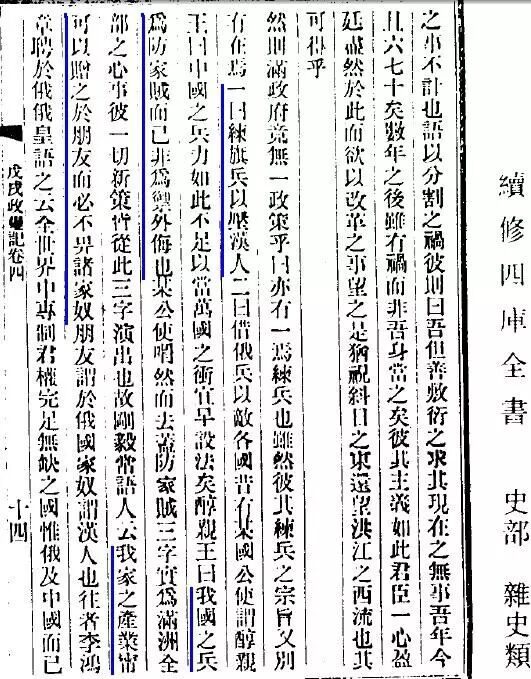 續修四庫全書 史部 雜史類
之事不計也語以分割之禍彼則曰吾但善敷衍之求其現在之無事吾年今
且六七十矣數年之後雖有禍而非吾身當之矣彼其主義如此君臣一心盈
廷盡然於此而欲以改革之事望之是猶視斜日之東還望洪江之西流也其
可得乎
然則滿政府竟無一政策乎曰亦有一焉練兵也雖然彼其練兵之宗旨又別
有在焉一曰練旗兵以壓漢人二曰借俄兵以敵各國昔有某國公使謂醇親
王曰中國之兵力如此不足以當萬國之衝宜早設法矣醇親王曰我國之兵
爲防家賊而已非爲禦外侮也某公使喟然而去蓋防家賊三字實爲滿洲全
部之心事彼一切新策皆從此三字演出也故剛毅常語人云我家之產業甯
可以贈之於朋友而必不畀諸家奴朋友謂於俄國家奴謂漢人也往者李鴻
章聘於俄俄皇語之云全世界中專制君權完足無缺之國惟俄及中國而已
戊戌政變記卷四 十四